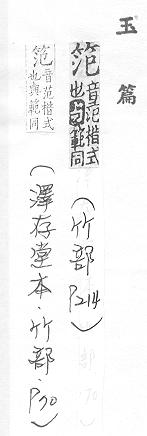 玉篇
笵音范楷式也与範同
(竹部P214)
笵音范楷式也與範同
(澤存堂本·竹部·P70)